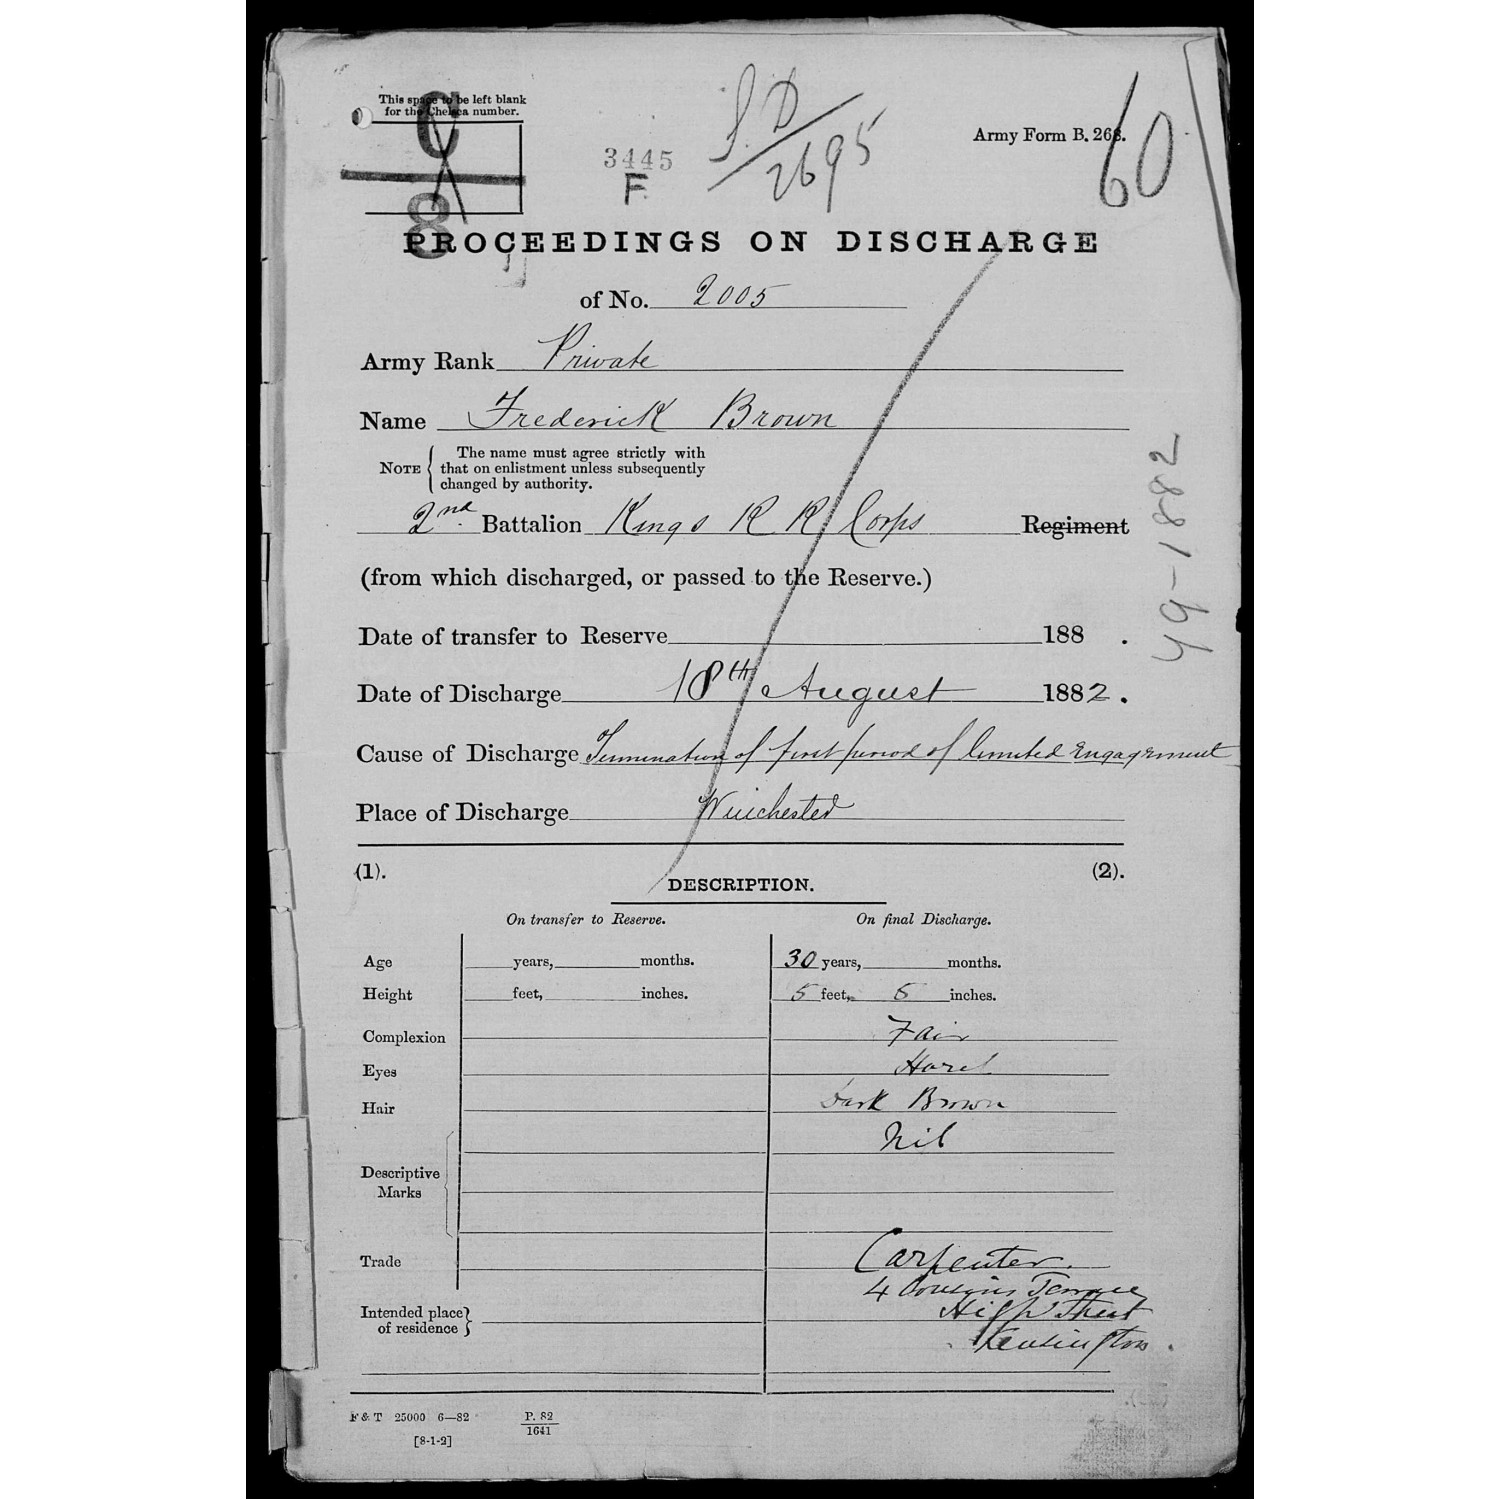 This space to be left blank
for the Chelsea number.
C
8
3445
F.
S.D
2695
Army Form B. 268.
60
PROCEEDINGS ON DISCHARGE
of No. 2005
Army Rank Private
Name Frederick Brown
NOTE { The name must agree strictly with
that on enlistment unless subsequently
changed by authority.
2nd Battalion Kings R R Corps Regiment
(from which discharged, or passed to the Reserve.)
49-1882
Date of transfer to Reserve 188 .
Date of Discharge 18th August 1882.
Cause of Discharge Termination of first period of limited Engagement
Place of Discharge Winchester
(1). (2).
DESCRIPTION.
On transfer to Reserve. On final Discharge.
Age years, months. 30 years, months.
Height feet, inches. 5 feet, 5 inches.
Complexion Fair
Eyes Hazel
Hair Dark Brown
Nil
Descriptive
Marks
Trade Carpenter.
4 Terrace
Intended place } High Street
of residence Kensington.
F & T 25000 6—82 P. 82
1641
[8-1-2]